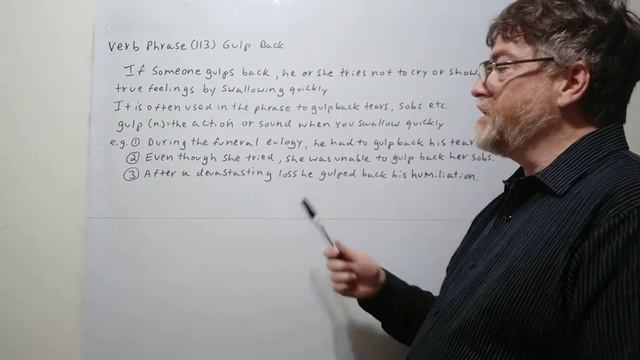 Verb Phrase (113) Gulp Back
If someone gulps back, he or she tries not to cry or show
true feelings by swallowing quickly
It is often used in the phrase to gulp back tears, sobs etc.
gulp (n)= the action or sound when you swallow quickly
e.g. ① During the funeral eulogy, he had to gulp back his tear
② Even though she tried, she was unable to gulp back her sobs.
③ After a devastasting loss he gulped back his humiliation.